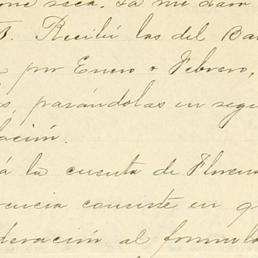 one sea. La me dan
T. Recibí las del Ba
por Enero & Febrero,
s, pasándolas en segui
lación.
á la cuenta de Floren
rencia consiste en q
deración al formula